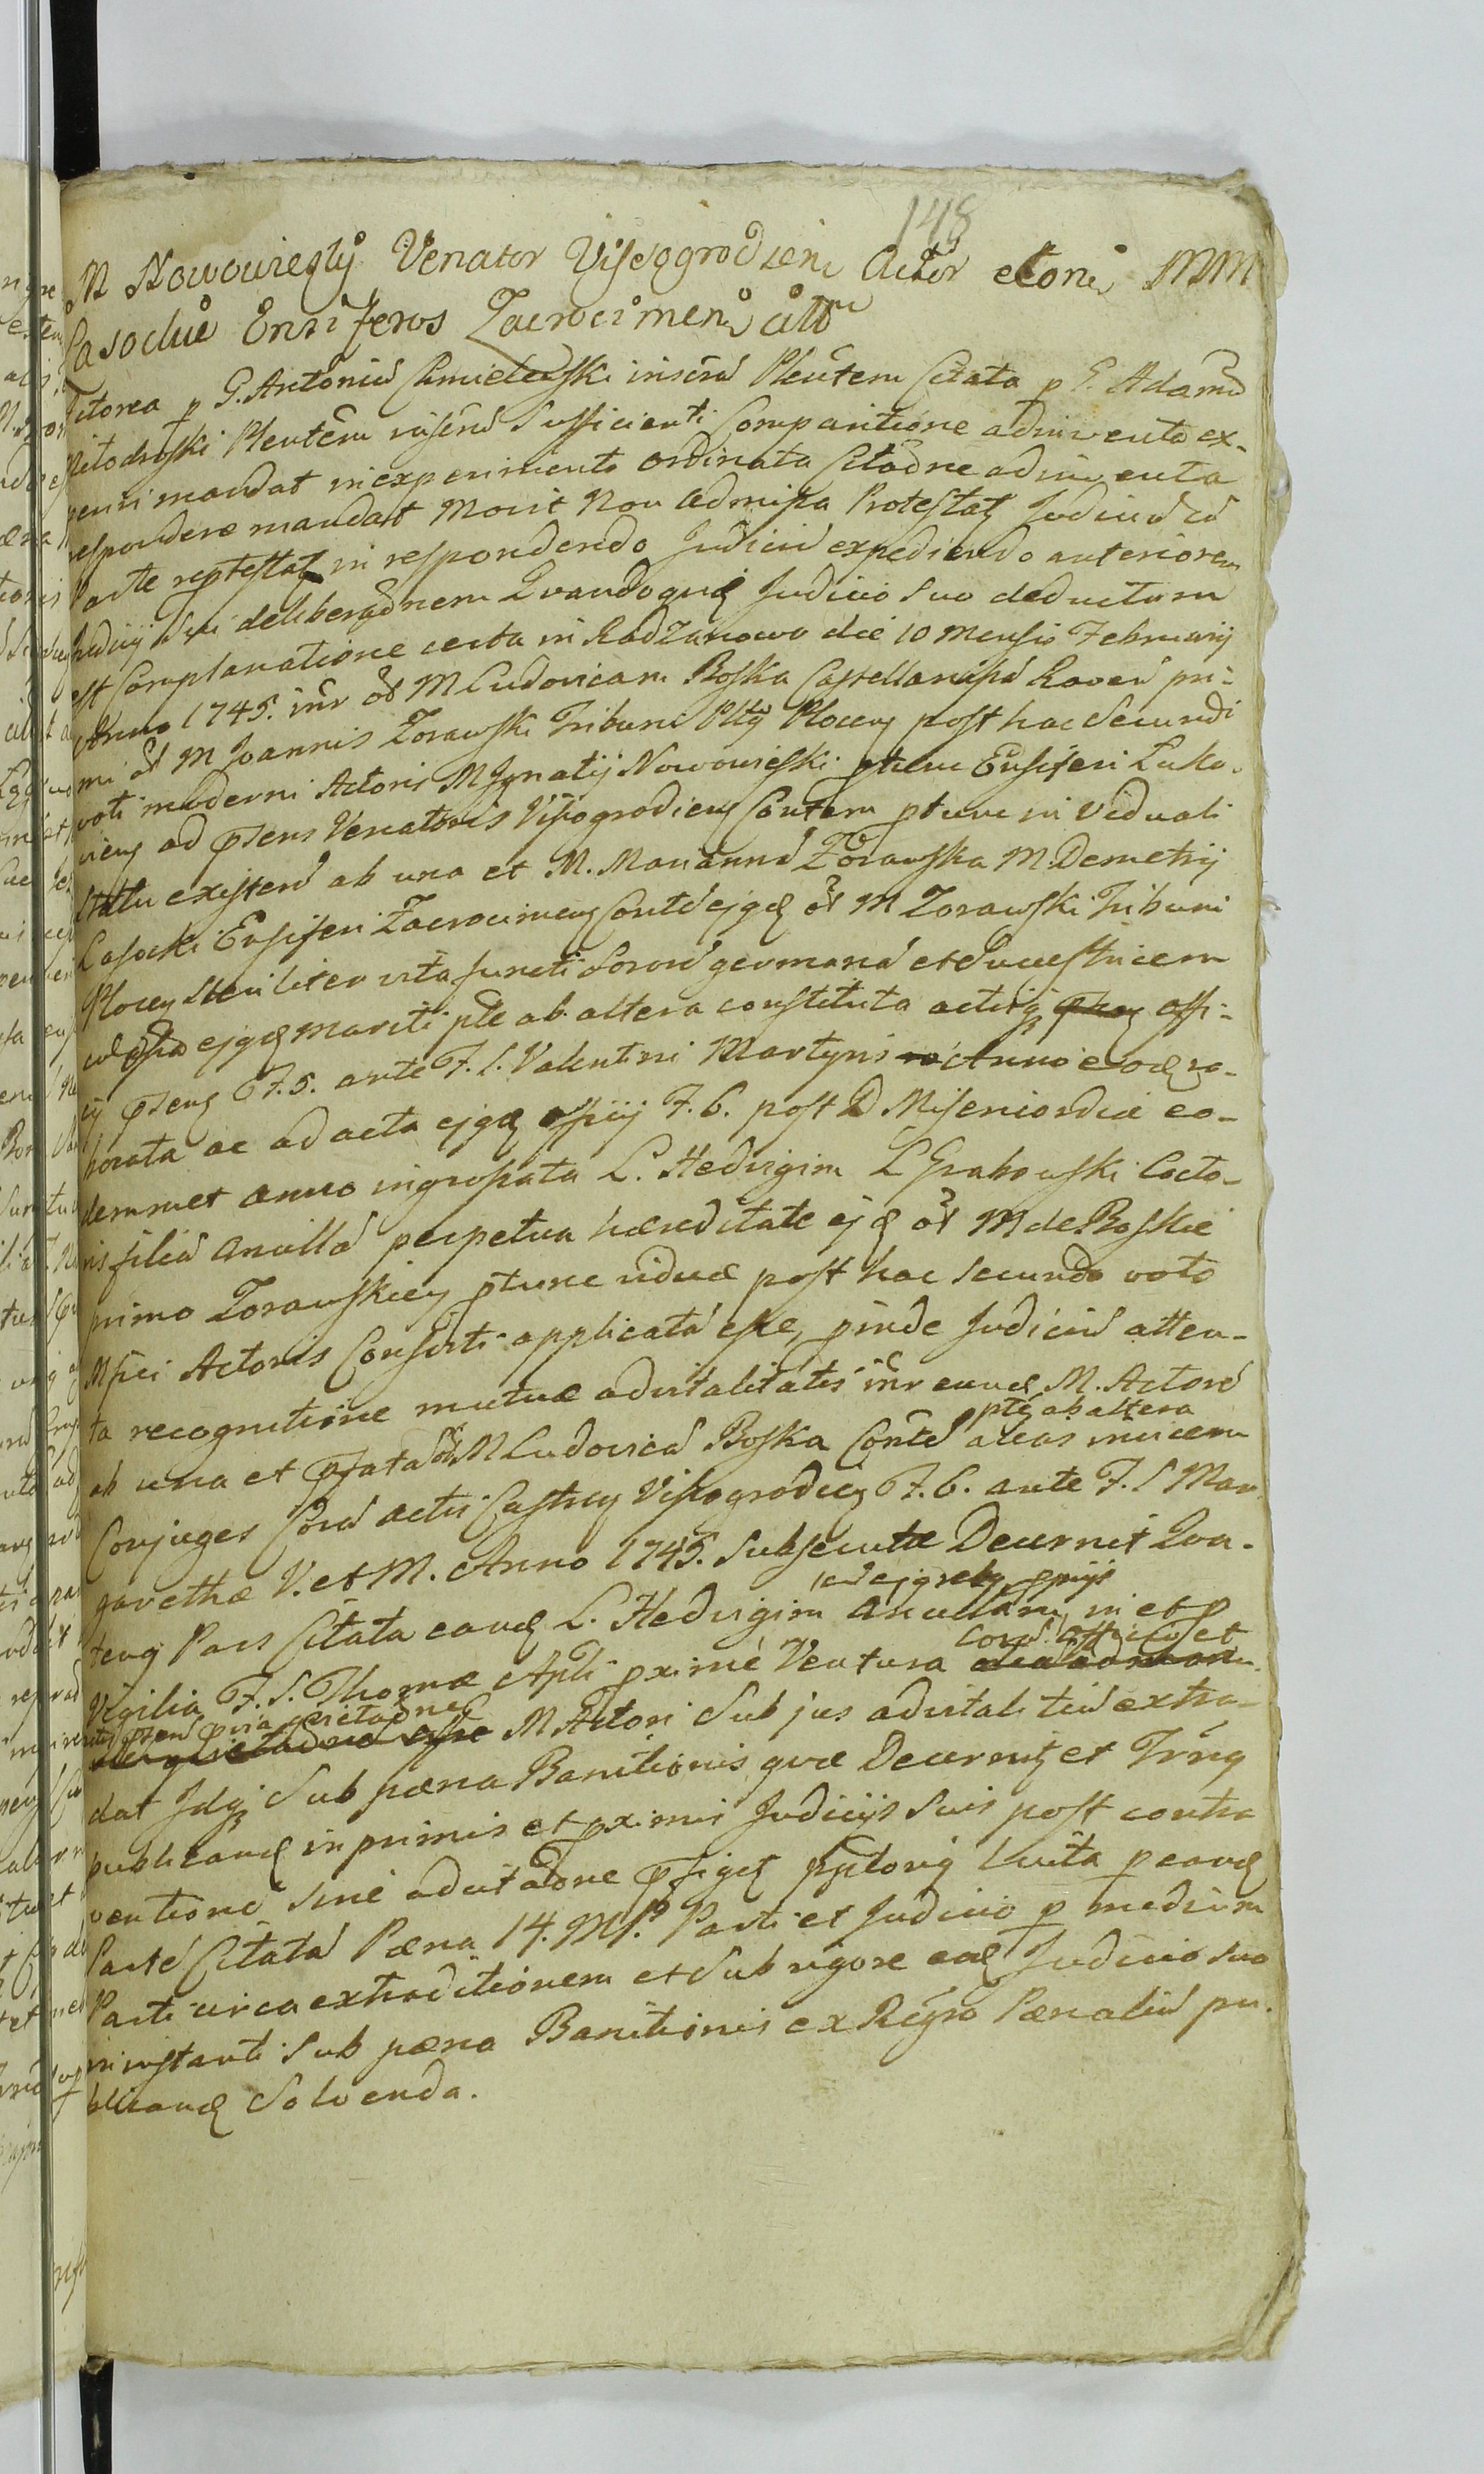 148
M Nowowieysky Venator Vissogrodzien Actor et Coñe MM
Lasockie Ensiferos Zacrocimen citt
Actorea p G. Antoniũ Chmielewski inscrũ Plentem Citata p G. Adamũ
Plentem inscrũ Sufficienti Comparitione adinventa ex-
periri mandat in experimento ordinata Citaõne adinventa
respondere mandat Movit Non admissa Protestatʒ Judiciũ cũ
Parte reptestatʒ in respondendo Judiciũ expediendo anteriorem
Judicij Sui deliberaõnem Quandoquidẽ Judicio Suo deductum
est Complanatione certa in Radzanowo die 10 Mensis Februarij
Anno 1745. inr ol M Ludovicam Boska Castellanidã Raveñ pri-
mi ol M Joannis Zorawski Tribuni Pltꝰ Plocenʒ post hac Secundi
voti moderni Actoris M Ignatij Nowowieski ptunc Ensiferi Zako-
cienʒ ad psens Venatoris Vissogrodienʒ Contem ptunc in Viduali
Statu existeñ ab una et M. Mariannã Zorawska M. Demetrij
Lasocki Ensiferi Zacrocimenʒ Contẽ ejgẽ ol M Zorawski Tribuni
Plocenʒ Steriliter vita functi Sororẽ germanã et Successtricem
ejgẽ mariti pte ab altera constituta actisqʒ offi-
cij psenʒ F. 5. ante F. S. Valentini Martyris Anno eodẽ ro-
borata ac ad acta ejgẽ officij F. 6. post D Misericordiæ eo-
demmet anno ingrossata L. Hedvigim L Grabowski Cocto-
ris filiã ancillã perpetua hæreditate ejgẽ ol M de Boskie
primo Zorawskiey ptunc viduæ post hac secundo voto
Mfici Actoris Consorti applicatã esse, pinde Judiciũ atten-
ta recognitione mutuæ advitalitatis inr eundẽ M. Actorẽ
ab una et pfatã ol M Ludovicã Boska Contẽ ptẽ ab altera alias invicem
Conjuges Corã actis Castren Vissogrodien F. 6. ante F. S Mar-
garethæ V. et M. Anno 1745. Subsecutæ Decernit Qua-
tenʒ Pars Citata eandẽ L. Hedvigim ancillam in et p
Vigilia F. S. Thomæ Apli pximè Ventura Corã officio et
M Actori Sub jus advitalitiũ extra-
dat Idqʒ Sub pœna Banitionis quæ Decernitʒ et Trñsq
publicandẽ in primis et pximis Judicijs Suis post contra
ventionẽ sine adcitaõne pfigẽ Luita p eandẽ
Partẽ Citatã Pœna 14. Mp. Parti et Judicio p medium
Parti circa extraditionem et Sub rigore eodẽ Judicio Suo
in instanti Sub pœna Banitionis ex Regro Pœnaliũ pu-
blicandẽ Solvenda.